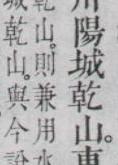 陽城乾山。東
乾山。則兼用水
城乾山。與今說